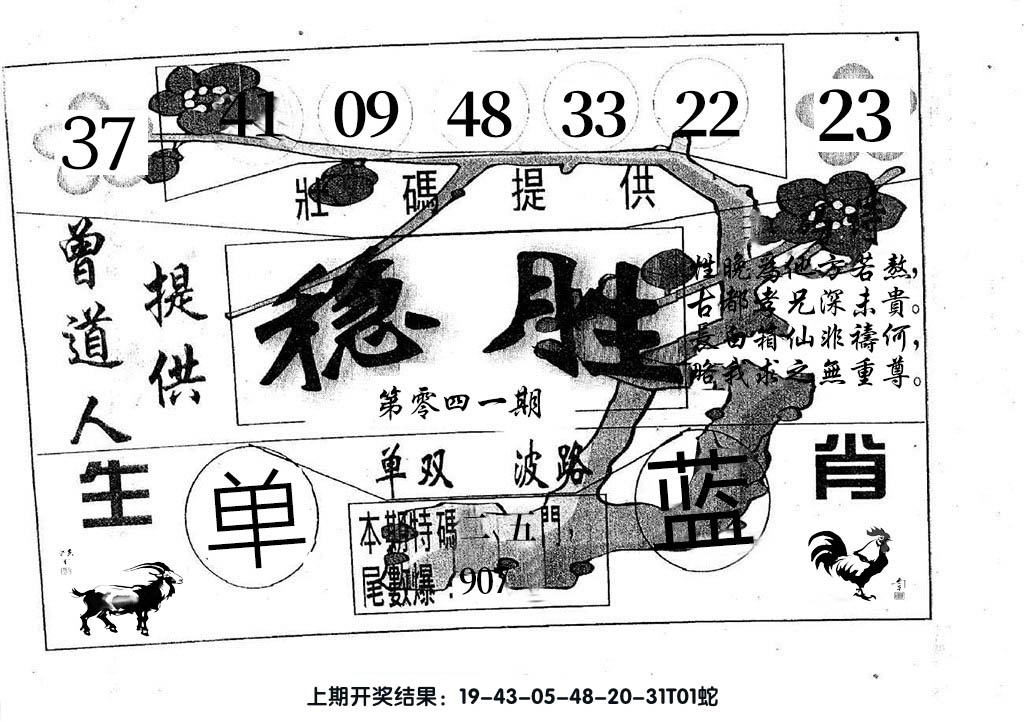 37 41 09 48 33 22 23
壯碼提供
曾道人
提供
稳胜
第零四一期
姓晚為他方若熬，
古都孝兄深未貴。
長白箱仙非禱何，
略我求之無重尊。
生肖
单双 波路
单 蓝
本期特碼二、五門，
尾數爆：907
上期开奖结果：19-43-05-48-20-31T01蛇